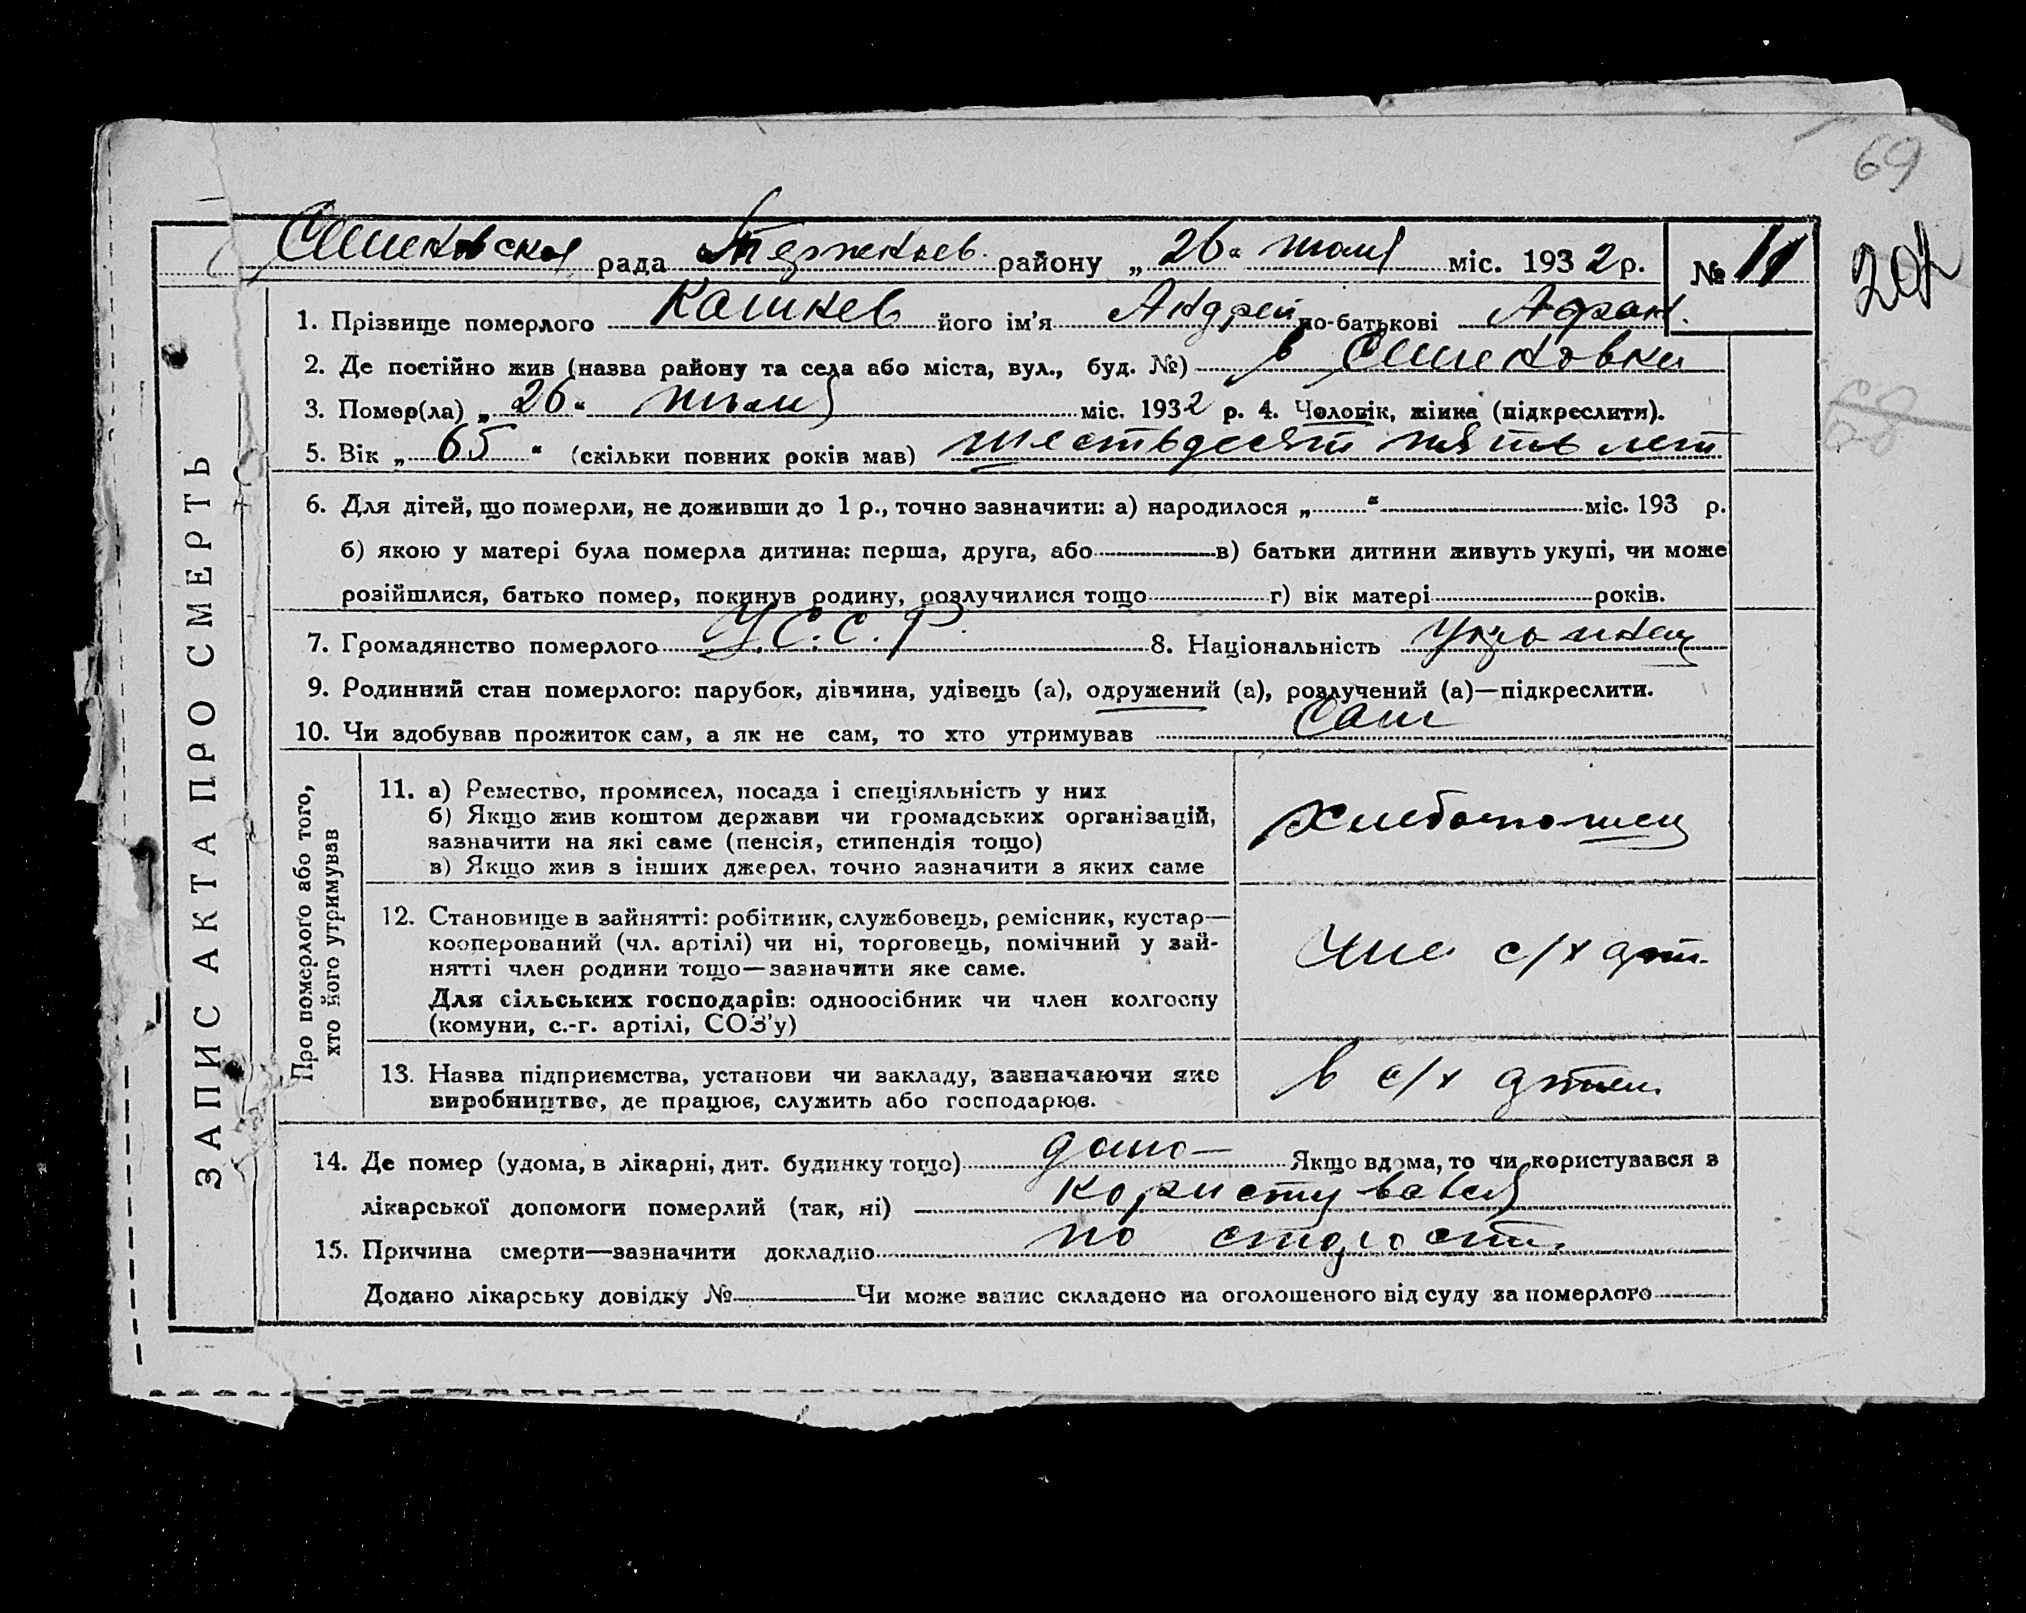 69
рада район у „ 26 “ міс. 1932 р. № 11
201
1. Прізвище померлого Кашнев його ім'я Андрей по-батькові
2. Де постійно жив (назва району та села або міста, вул., буд. №) в
3. Помер(ла) „ 26 “ міс. 1932 р. 4. Чоловік, жінка (підкреслити).
5. Вік „ 65 “ (скільки повних років мав) шестьдесят пять лет
6. Для дітей, що померли, не доживши до 1 р., точно зазначити: а) народилося „ “ міс. 193 р.
б) якою у матері була померла дитина: перша, друга, або в) батьки дитини живуть укупі, чи може
розійшлися, батько помер, покинув родину, розлучилися тощо г) вік матері років.
7. Громадянство померлого У.С.С.Р. 8. Національність Украинец
9. Родинний стан померлого: парубок, дівчина, удівець (а), одружений (а), розлучений (а)—підкреслити.
10. Чи здобував прожиток сам, а як не сам, то хто утримував Сам
ЗАПИС АКТА ПРО СМЕРТЬ
Про померлого або того,
хто його утримував
11. а) Ремество, промисел, посада і спеціяльність у них
б) Якщо жив коштом держави чи громадських організацій,
зазначити на які саме (пенсія, стипендія тощо)
в) Якщо жив з інших джерел, точно зазначити з яких саме
Хлебопашец
12. Становище в зайнятті: робітник, службовець, ремісник, кустар—
кооперований (чл. артілі) чи ні, торговець, помічний у зай-
нятті член родини тощо—зазначити яке саме.
Для сільських господарів: одноосібник чи член колгоспу
(комуни, с.-г. артілі, СОЗ'у)
член с/х арт.
13. Назва підприємства, установи чи закладу, зазначаючи яке
виробництво, де працює, служить або господарює.
в с/х артели
14. Де помер (удома, в лікарні, дит. будинку тощо) дома Якщо вдома, то чи користувався з
лікарської допомоги померлий (так, ні) користувався
15. Причина смерти—зазначити докладно по старости
Додано лікарську довідку № Чи може запис складено на оголошеного від суду за померлого